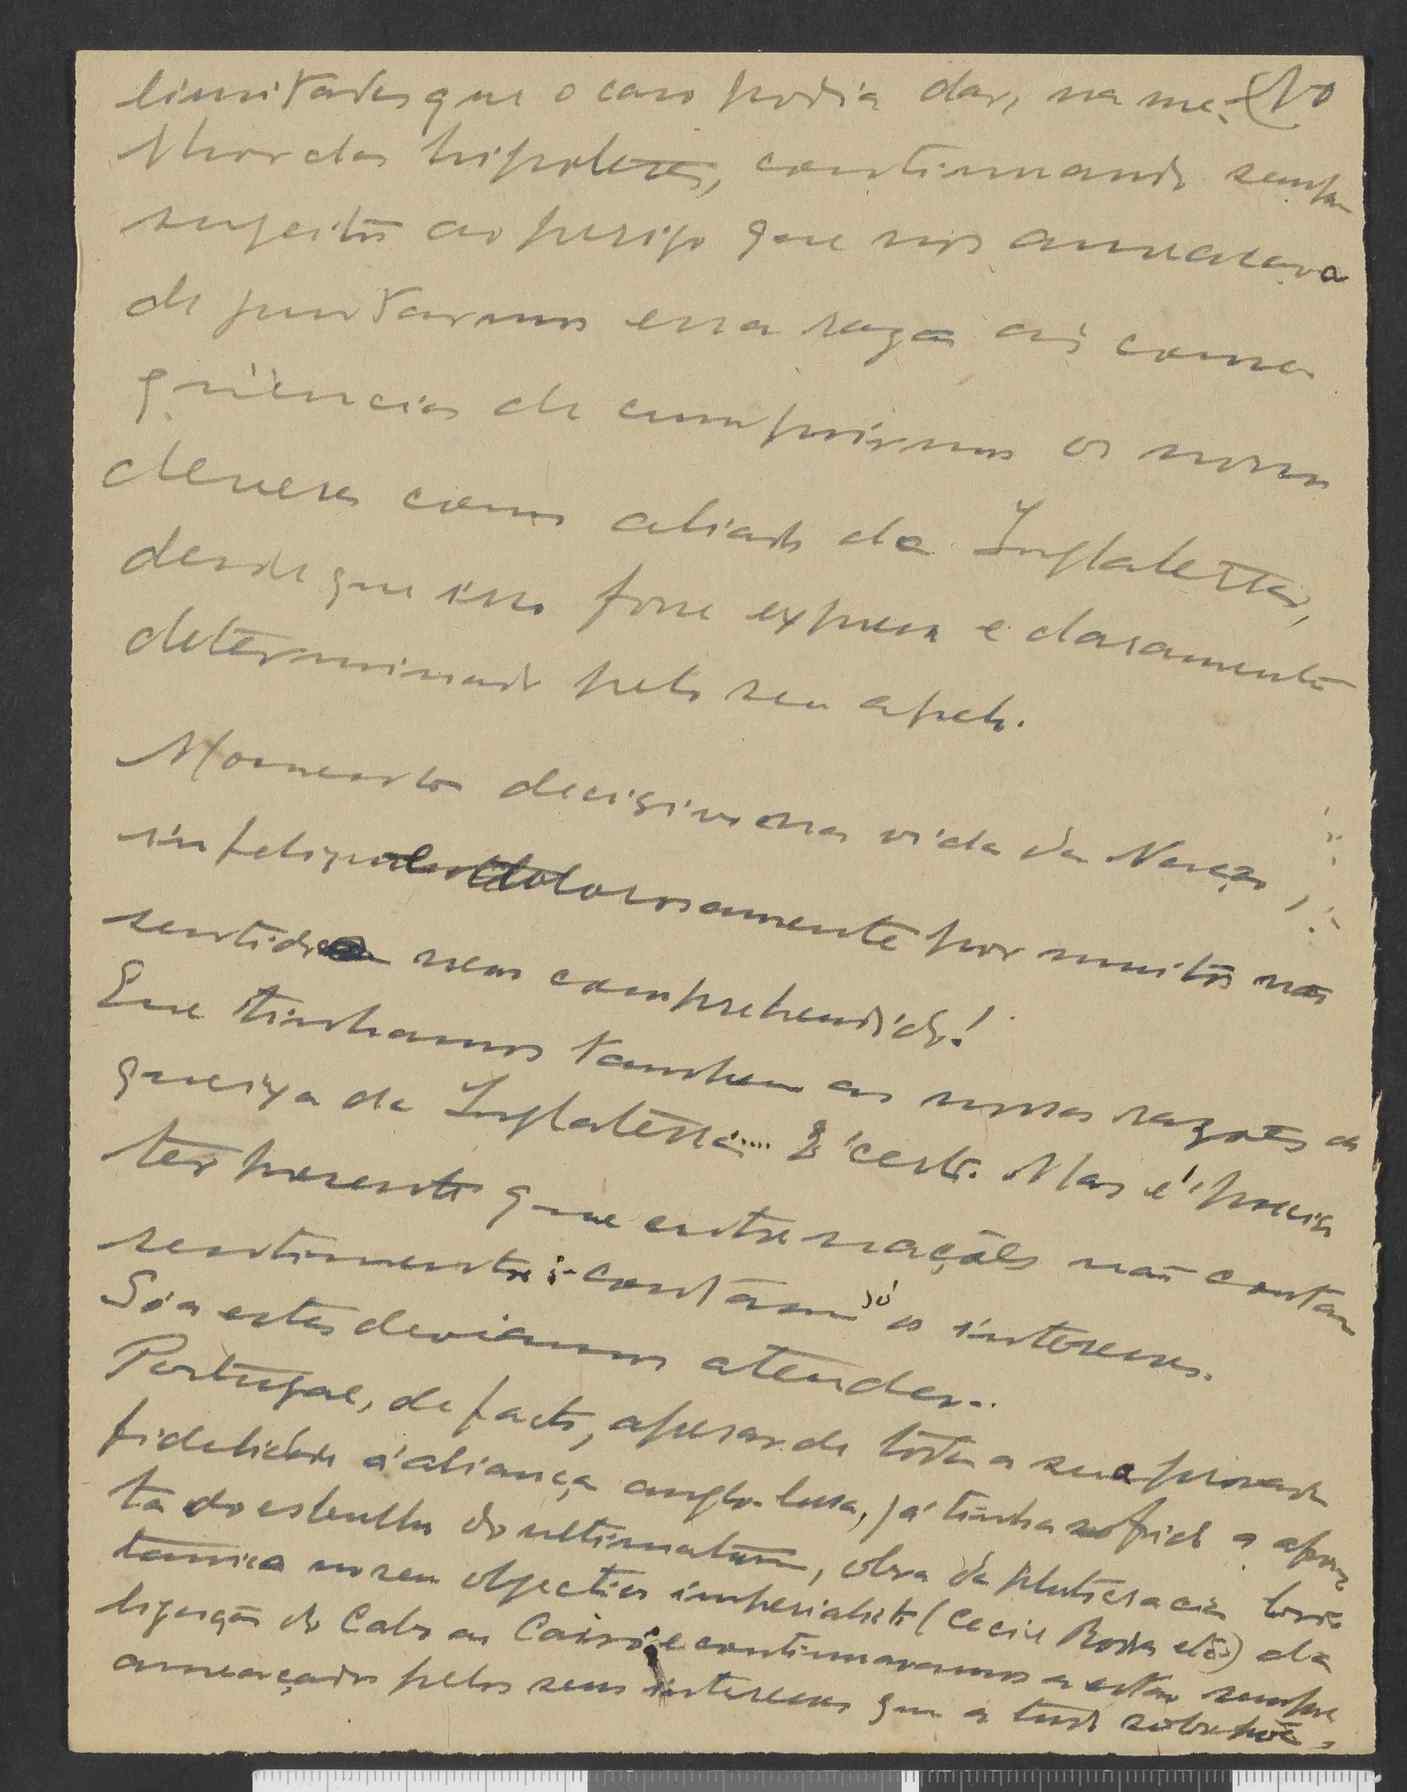 limitados que o caso podia dar, na me- 10
lhor das hipoteses, continuando sempre
sugeitos ao perigo que nos ameaçava
de juntarmos essa razão ás conse
quências de cumprirmos os nossos
deveres como aliados da Inglaterra,
desde que isso fosse expressa e claramente
determinado pelo seu apelo.
Momento decisivo na vida da Nação,
infeliz dolorosamente por muitos não
sentido nem comprehendido!
Que tinhamos tambem as nossas razões de
queixa da Inglaterra.... É certo. Mas é preciso
ter presente que entre nações não contam
sentimentos: contam só os interesses.
Só a estes deviamos atender.
Portugal, de facto, apesar de toda a sua provada
fidelidade á aliança anglo-lusa, já tinha sofrido a afron
ta do esbulho do ultimatum, obra da plutocracia britá
tanica no seu objectivo imperialista (Cecil Rodes etc.) da
ligação do Cabo ao Cairo e continuavamos a estar sempre
ameaçados pelos seus interesses que a tudo sobrepõe.